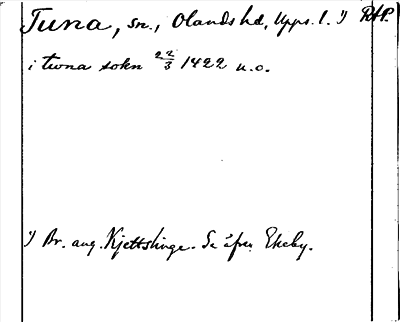 Tuna, sn., Olands hd, Upps. l. 1) RAP.
i twna sokn 22/3 1422 u.o.
1) Br. ang. Kjettslinge. Se äfven Ekeby.